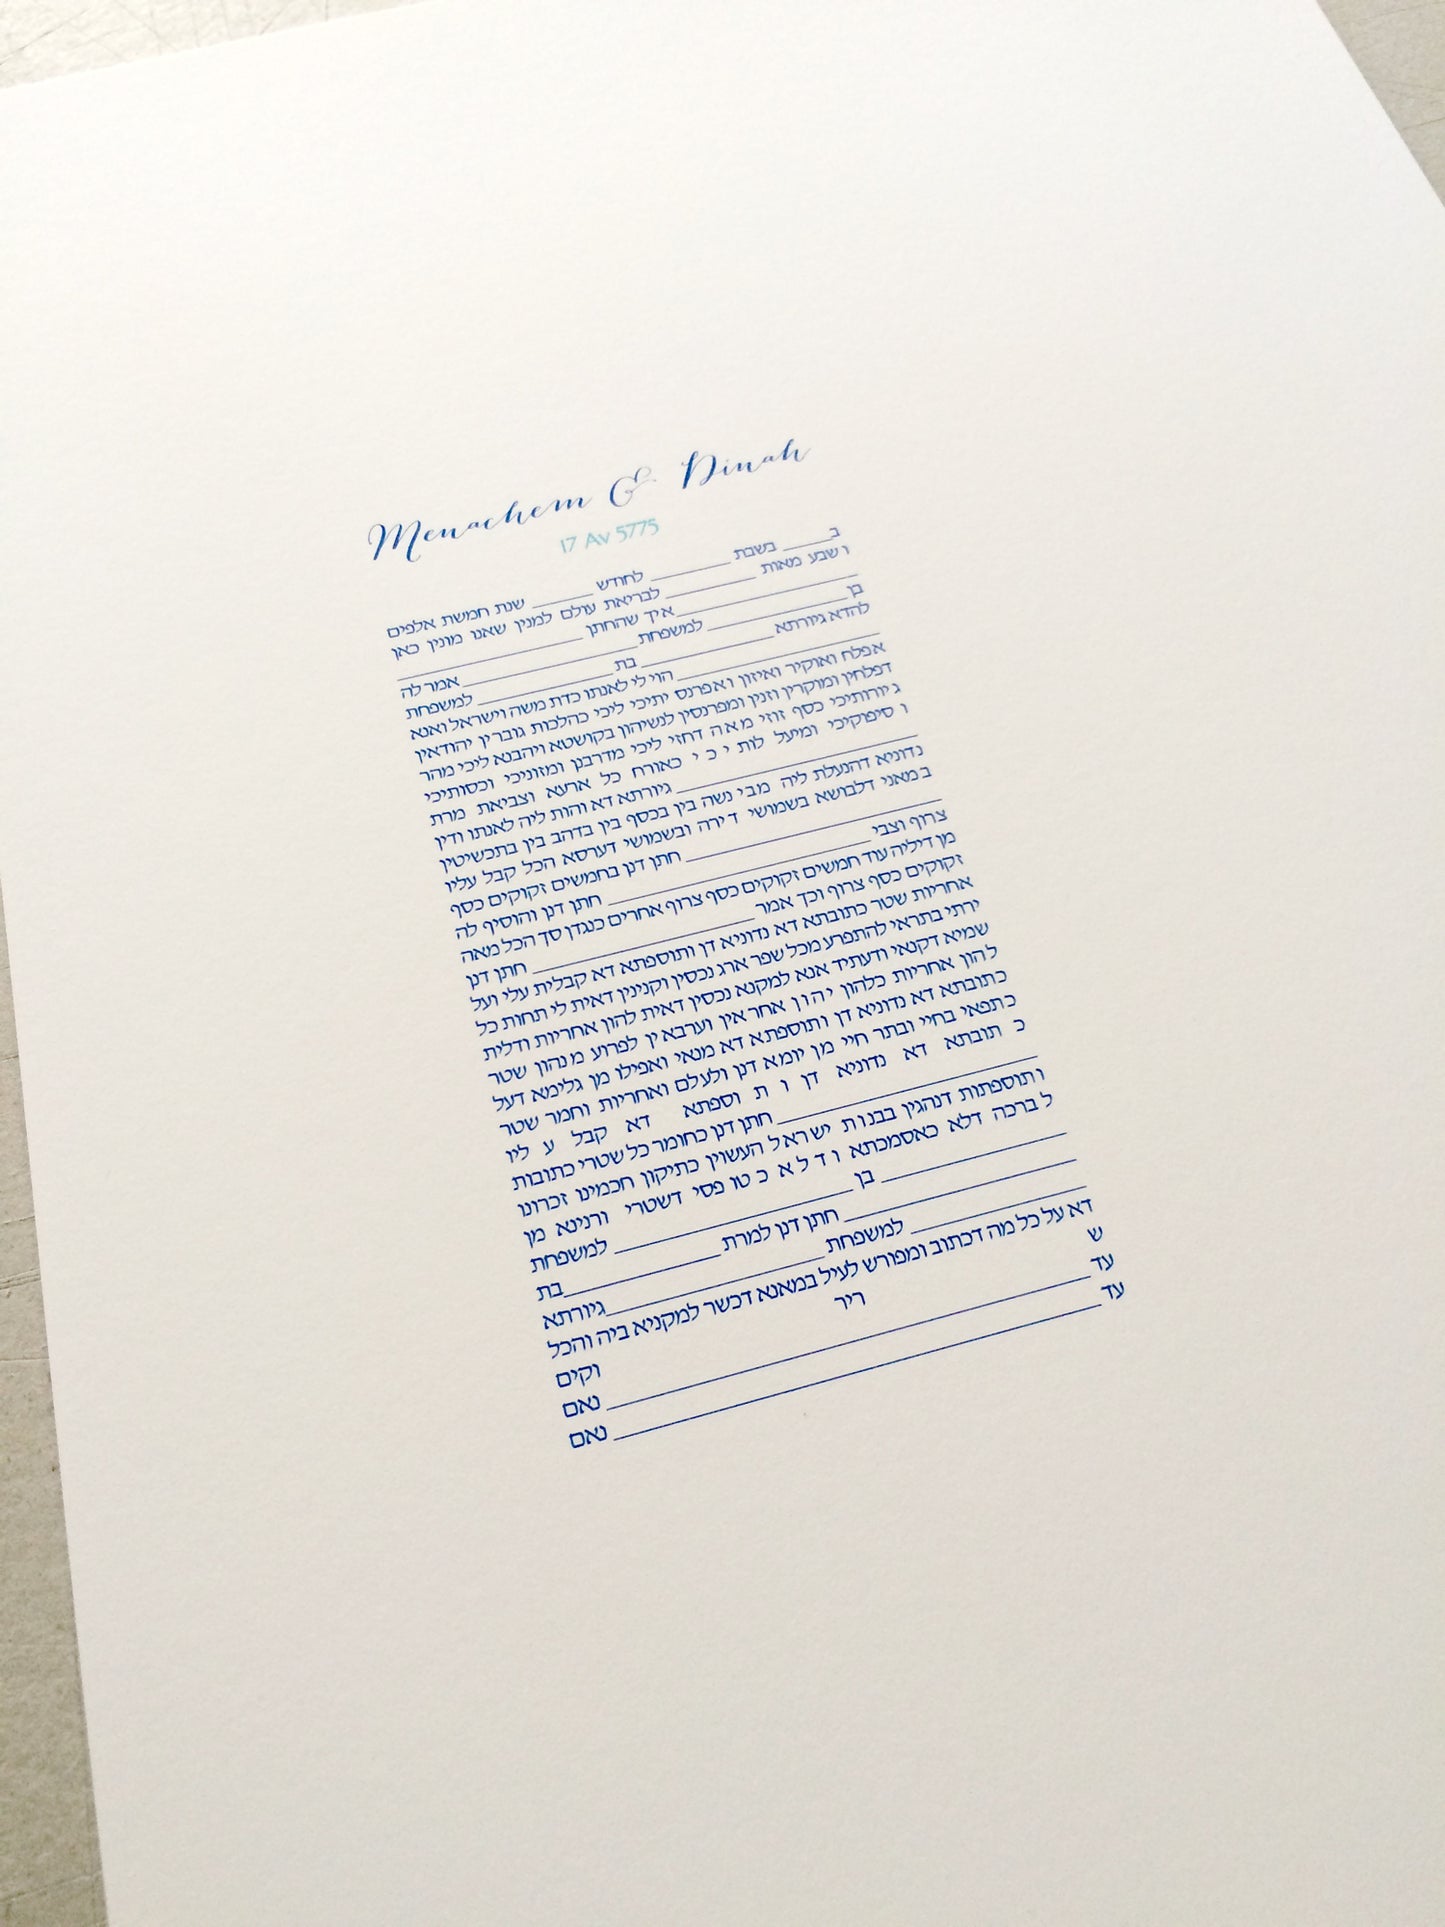 Menachem & Dinah
17 Av 5775
ב_____ בשבת ________ לחודש ______ שנת חמשת אלפים
ו שבע מאות _________ לבריאת עולם למנין שאנו מונין כאן
__________________ איך שהחתן __________________
בן ______________ למשפחת ________________ אמר לה
להדא גיורתא ____________ בת ____________ למשפחת
____________________ הוי לי לאנתו כדת משה וישראל ואנא
אפלח ואוקיר ואיזון ואפרנס יתיכי ליכי כהלכות גוברין יהודאין
דפלחין ומוקרין וזנין ומפרנסין לנשיהון בקושטא ויהבנא ליכי מהר
ג יורותיכי כסף זוזי מאה דחזי ליכי מדרבנן ומזוניכי וכסותיכי
ו סיפוקיכי ומיעל לות י כ י כאורח כל ארעא וצביאת מרת
________________________ גיורתא דא והות ליה לאנתו ודין
נדוניא דהנעלת ליה מבי נשה בין בכסף בין בדהב בין בתכשיטין
במאני דלבושא בשמושי דירה ובשמושי דערסא הכל קבל עליו
________________________ חתן דנן בחמשים זקוקים כסף
צרוף וצבי ________________________ חתן דנן והוסיף לה
מן דיליה עוד חמשים זקוקים כסף צרוף אחרים כנגדן סך הכל מאה
זקוקים כסף צרוף וכך אמר ____________________ חתן דנן
אחריות שטר כתובתא דא נדוניא דן ותוספתא דא קבלית עלי ועל
ירתי בתראי להתפרע מכל שפר ארג נכסין וקנינין דאית לי תחות כל
שמיא דקנאי ודעתיד אנא למקנא נכסין דאית להון אחריות ודלית
להון אחריות כלהון יהון אחראין וערבאין לפרוע מנהון שטר
כתובתא דא נדוניא דן ותוספתא דא מנאי ואפילו מן גלימא דעל
כתפאי בחיי ובתר חיי מן יומא דנן ולעלם ואחריות וחמר שטר
כ תובתא דא נדוניא דן ו ת וספתא דא קבל ע ליו
________________________ חתן דנן כחומר כל שטרי כתובות
ותוספתות דנהגין בבנות ישראל העשוין כתיקון חכמינו זכרונו
ל ברכה דלא כאסמכתא ו ד ל א כ טו פסי דשטרי ורנינא מן
________________ בן ____________________ למשפחת
____________________ חתן דנן למרת ______________בת
________________ למשפחת ____________________גיורתא
דא על כל מה דכתוב ומפורש לעיל במאנא דכשר למקניא ביה והכל
ש ריר וקים
עד________________________________________ נאם
עד________________________________________ נאם